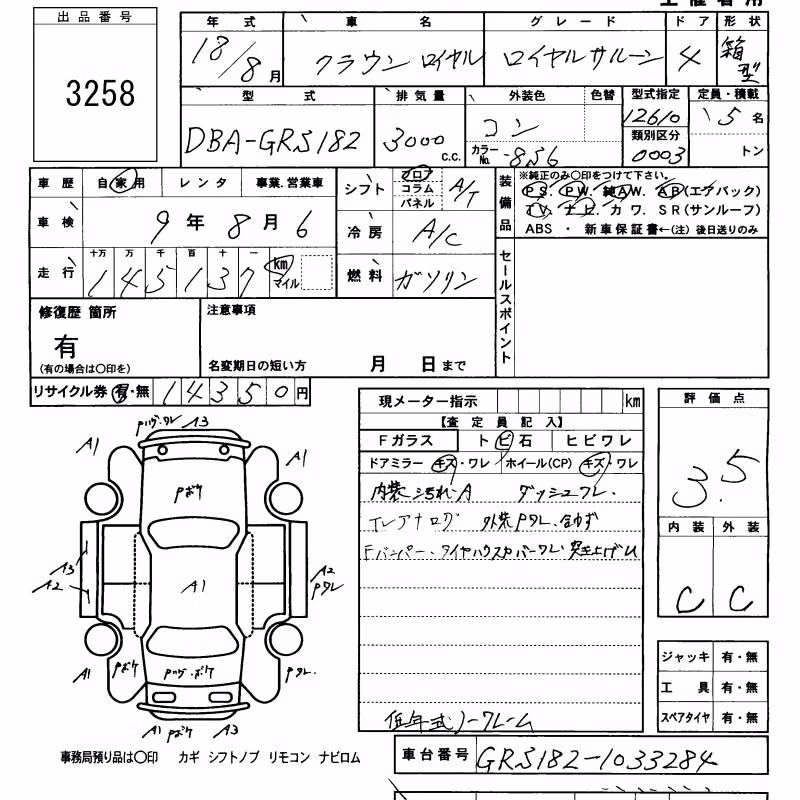 出品番号
3258
年式 車名 グレード ドア 形状
18/8月 クラウン ロイヤル ロイヤルサルーン 4 箱型
型式 排気量 外装色 色替 型式指定 定員・積載
DBA-GRS182 3000 c.c. コン カラーNo. 8S6 12610 5名
類別区分
0003 トン
車歴 自家用 レンタ 事業.営業車 シフト フロア コラム パネル A/T
装備品 ※純正のみ○印をつけて下さい。
PS. PW. 純AW. AB(エアバック)
TV. ナビ. カワ. SR(サンルーフ)
ABS ・ 新車保証書←(注) 後日送りのみ
車検 9年8月6 冷房 A/C
走行 十万 万 千 百 十 一
145137 km マイル 燃料 ガソリン
セールスポイント
修復歴 箇所 注意事項
有
(有の場合は○印を) 名変期日の短い方 月 日まで
リサイクル券 有・無 14350円
現メーター指示 km
【査定員記入】
Fガラス トビ石 ヒビワレ
ドアミラー キズ・ワレ ホイール(CP) キズ・ワレ
内装汚れ.A ダッシュワレ.
TVアナログ 外装PタレL.合わず
Fバンパー、タイヤハウスカバーワレ 突き上げU
低年式ノークレーム
評価点
3.5
内装 外装
C C
ジャッキ 有・無
工具 有・無
スペアタイヤ 有・無
Pツヅ・ワレ A3
A1 A1
Pボケ
A3 A2 A1 A2 Pワレ
A1 Pボケ Pツヅ・ボケ Pワレ.
A1 Pボケ A3
事務局預り品は○印 カギ シフトノブ リモコン ナビロム
車台番号 GRS182-1033284